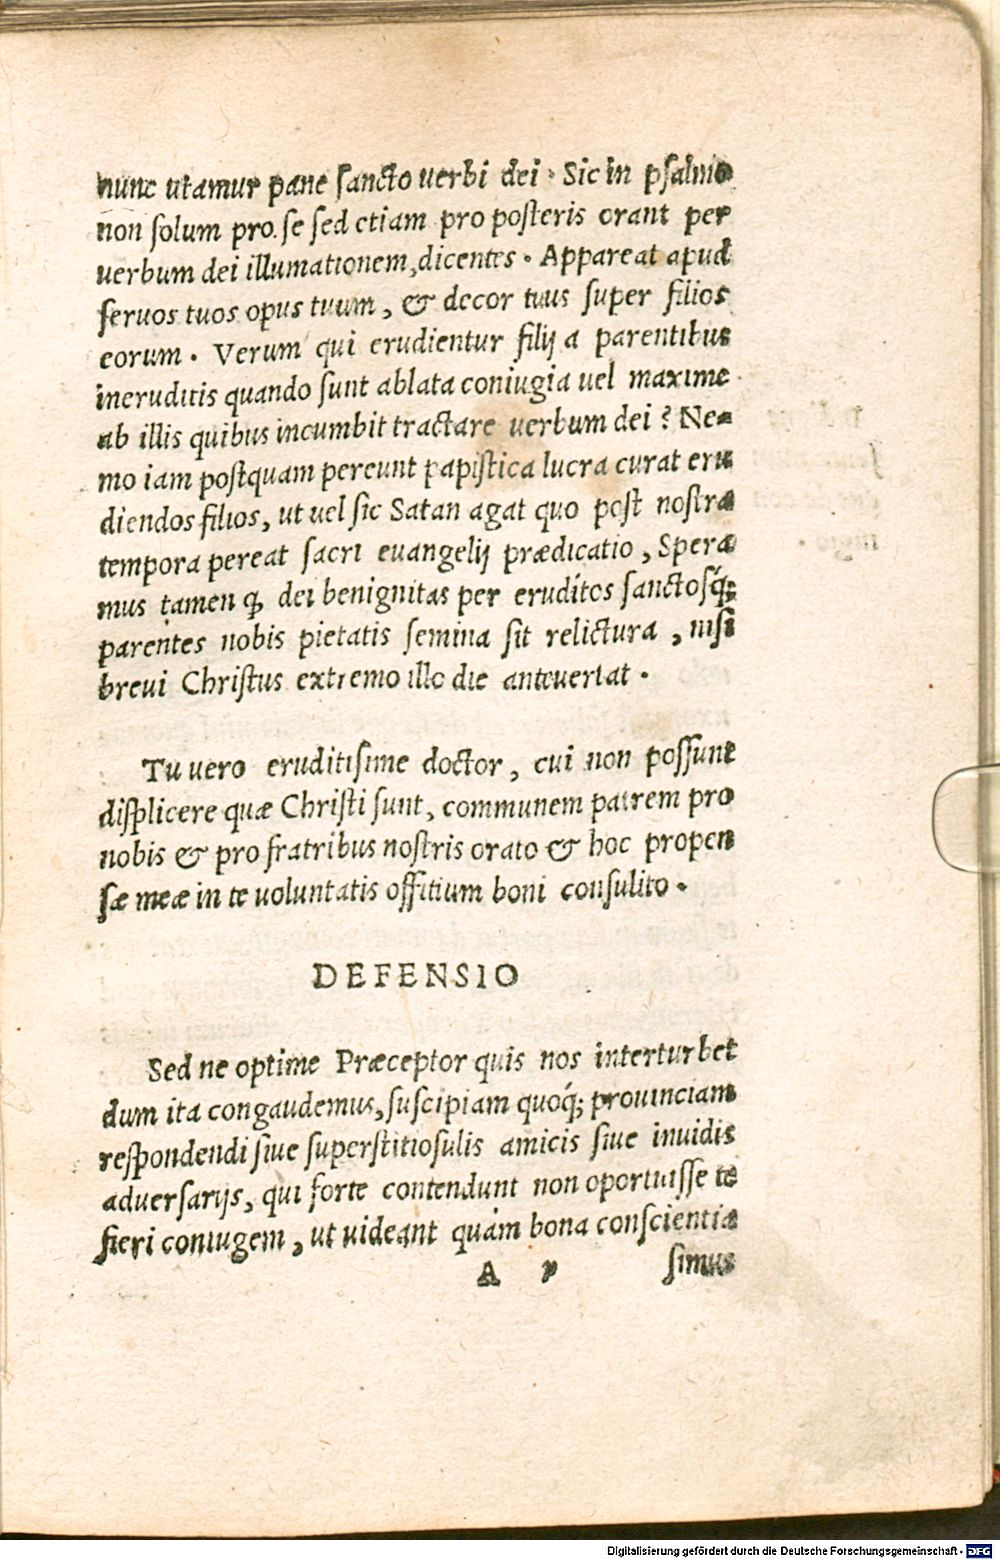 nunc utamur pane ſancto uerbi dei · Sic in pſalmo
non ſolum pro.ſe ſed etiam pro poſteris orant per
uerbum dei illumationem, dicentes · Appareat apud
ſeruos tuos opus tuum, & decor tuus ſuper filios
eorum · Verum qui erudientur filij a parentibus
ineruditis quando ſunt ablata coniugia uel maxime
ab illis quibus incumbit tractare uerbum dei ? Ne=
mo iam poſtquam pereunt papiſtica lucra curat eru
diendos filios, ut uel ſic Satan agat quo poſt noſtra
tempora pereat ſacri euangelij prædicatio, Spera
mus tamen ꝙ dei benignitas per eruditos ſanctoſq́;
parentes nobis pietatis ſemina ſit relictura, niſi
breui Chriſtus extremo illo die anteuertat ·
Tu uero eruditiſime doctor, cui non poſſunt
diſplicere quæ Chriſti ſunt, communem patrem pro
nobis & pro fratribus noſtris orato & hoc propen
ſæ meæ in te uoluntatis offitium boni conſulito ·
DEFENSIO
Sed ne optime Præceptor quis nos interturbet
dum ita congaudemus, ſuſcipiam quoq́; prouinciam
reſpondendi ſiue ſuperſtitioſulis amicis ſiue inuidis
aduerſarijs, qui forte contendunt non oportuiſſe te
fieri coniugem, ut uideant quàm bona conſcientia
A ſimus
Digitalisierung gefördert durch die Deutsche Forschungsgemeinschaft - DFG